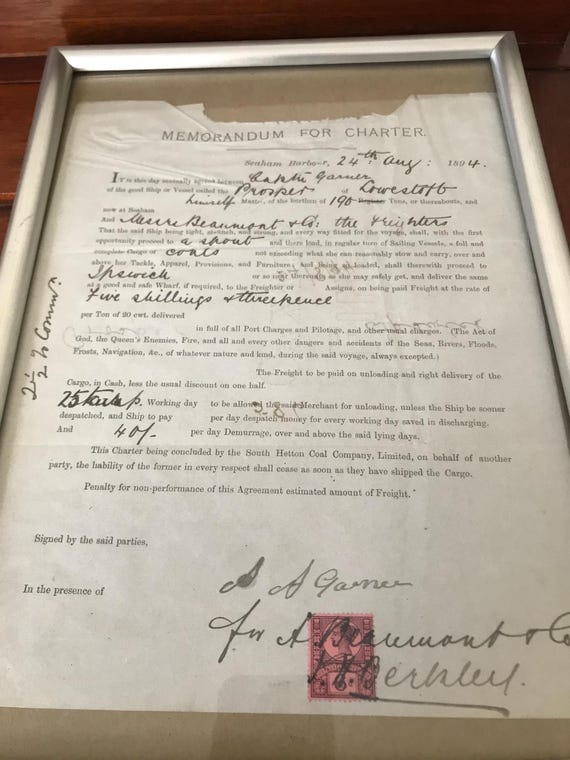 MEMORANDUM FOR CHARTER.
Seaham Harbour, 24th Aug: 1894.
IT is this day mutually agreed between Captn Garner
of the good Ship or Vessel called the Prosper of Lowestoft
himself Master, of the burthen of 190 Register Tons, or thereabouts, and
now at Seaham
And Messrs Beaumont & Co: the freighters
That the said Ship being tight, staunch, and strong, and every way fitted for the voyage, shall, with the first
opportunity proceed to a spout and there load, in regular turn of Sailing Vessels, a full and
complete Cargo of coals not exceeding what she can reasonably stow and carry, over and
above her Tackle, Apparel, Provisions, and Furniture; and being so loaded, shall therewith proceed to
Ipswich or so near thereunto as she may safely get, and deliver the same
at a good and safe Wharf, if required, to the Freighter or Assigns, on being paid Freight at the rate of
Five shillings & threepence
per Ton of 20 cwt. delivered
in full of all Port Charges and Pilotage, and other usual charges. (The Act of
God, the Queen's Enemies, Fire, and all and every other dangers and accidents of the Seas, Rivers, Floods,
Frosts, Navigation, &c., of whatever nature and kind, during the said voyage, always excepted.)
The Freight to be paid on unloading and right delivery of the
Cargo, in Cash, less the usual discount on one half.
25 Working day to be allowed the said Merchant for unloading, unless the Ship be sooner
despatched, and Ship to pay per day despatch money for every working day saved in discharging.
And 40/- per day Demurrage, over and above the said lying days.
This Charter being concluded by the South Hetton Coal Company, Limited, on behalf of another
party, the liability of the former in every respect shall cease as soon as they have shipped the Cargo.
Penalty for non-performance of this Agreement estimated amount of Freight.
Signed by the said parties,
In the presence of
A A Garner
for A Beaumont & Co
Berkley.